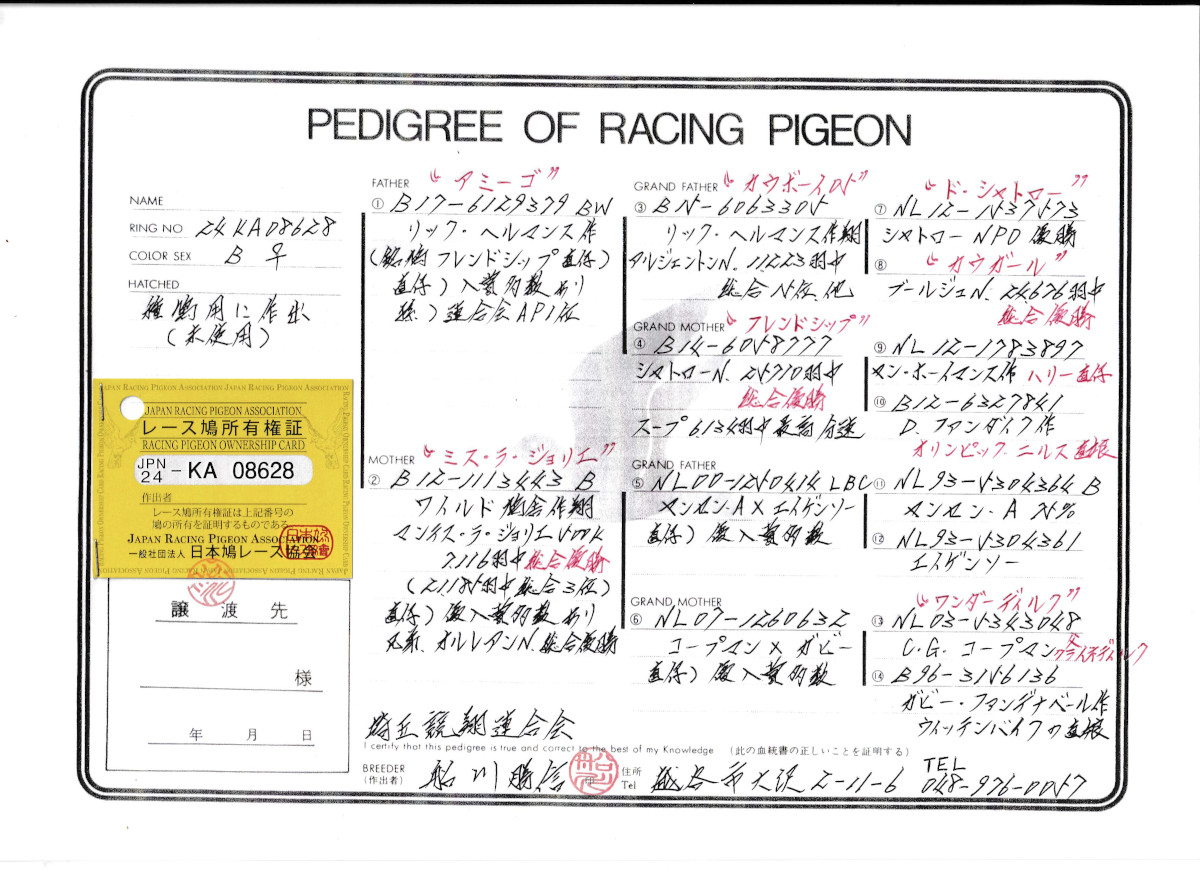 PEDIGREE OF RACING PIGEON
NAME
RING NO 24KA08628
COLOR SEX B ♀
HATCHED
種鳩用に作出
(未使用)
JAPAN RACING PIGEON ASSOCIATION
レース鳩所有権証
RACING PIGEON OWNERSHIP CARD
JPN
24 - KA 08628
作出者
レース鳩所有権証は上記番号の
鳩の所有を証明するものである
JAPAN RACING PIGEON ASSOCIATION
一般社団法人 日本鳩レース協会
譲渡先
様
年 月 日
FATHER "アミーゴ"
① B17-6129379 BW
リック・ヘルマンス作
(銘鳩フレンドシップ直仔)
直仔)入賞多数あり
孫)連合会AP1位
MOTHER "ミス・ラ・ジョリエ"
② B12-1113443 B
ワイルド鳩舎作翔
マンテス・ラ・ジョリエ500K
7.116羽中総合優勝
(21.185羽中総合3位)
直仔)僚入賞多数あり
兄弟、オルレアンN.総合優勝
GRAND FATHER "カウボーイ05"
③ B15-6063305
リック・ヘルマンス作翔
アルジェントンN.11.223羽中
総合5位他
GRAND MOTHER "フレンドシップ"
④ B14-6058777
シャトローN.25710羽中
総合優勝
スープ6.134羽中最高分速
GRAND FATHER
⑤ NL00-1250414 LBC
ヤンセン・A×エイゲンソー
直仔)僚入賞多数
GRAND MOTHER
⑥ NL07-1260632
コープマン×ガビー
直仔)僚入賞多数
"ド・シャトロー"
⑦ NL12-1537573
シャトローNPO優勝
⑧ "カウガール"
ブールジュN.24.676羽中
総合優勝
⑨ NL12-1783897
ヤン・ホーイマンス作 ハリー直仔
⑩ B12-6327841
D.ファンダイク作
オリンピック ニルス直娘
⑪ NL93-5304364 B
ヤンセン・A
⑫ NL93-5304361
エイゲンソー
"ワンダーディルク"
⑬ NL03-5343048
C.G.コープマン 父クライネディルク
⑭ B96-3156136
ガビー・ファンデナベール作
ウィッテンバイクの直娘
埼玉競翔連合会
I certify that this pedigree is true and correct to the best of my Knowledge (此の血統書の正しいことを証明する)
BREEDER
(作出者) 船川勝信 住所
Tel 越谷市大沢2-11-6 TEL
048-976-0057